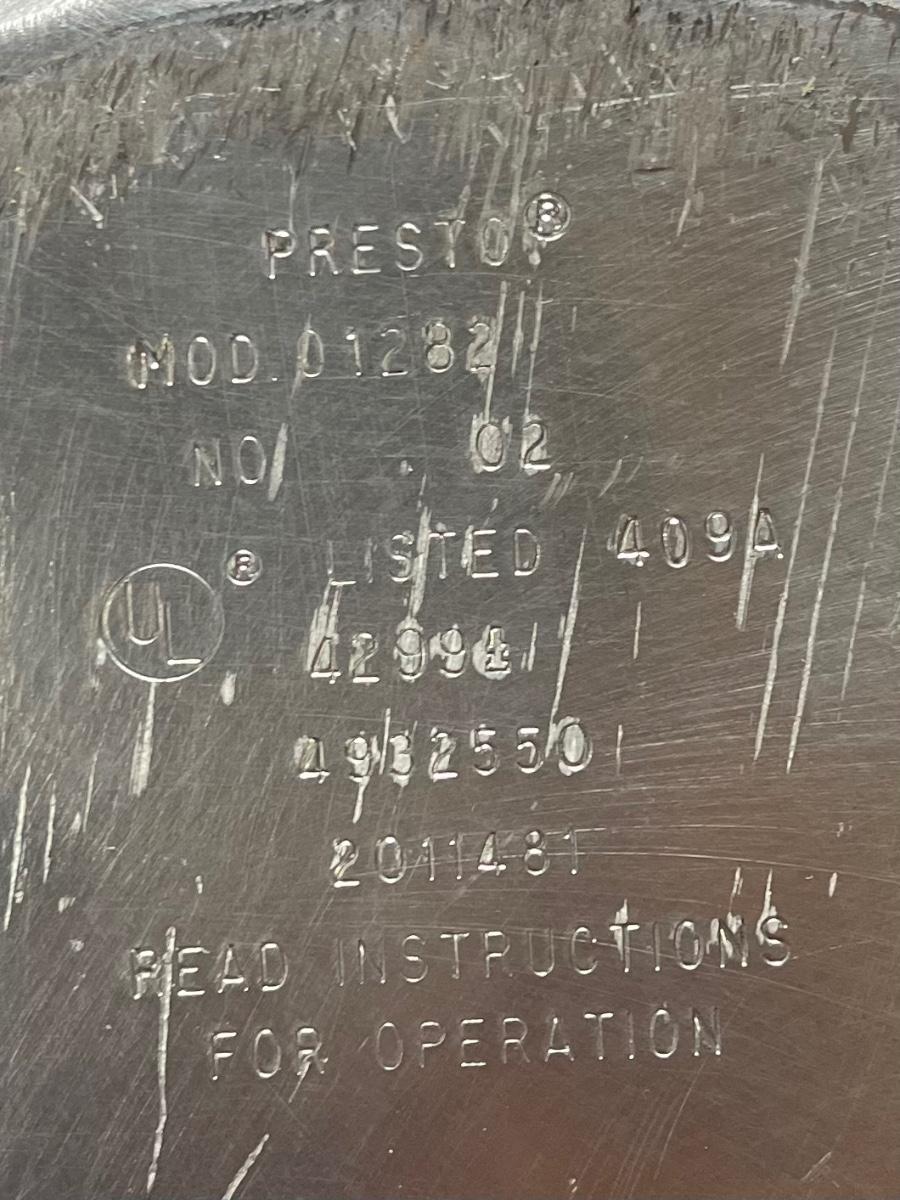 PRESTO®
MOD. 01282
NO. 02
UL® LISTED 409A
42994
4932550
2011481
READ INSTRUCTIONS
FOR OPERATION